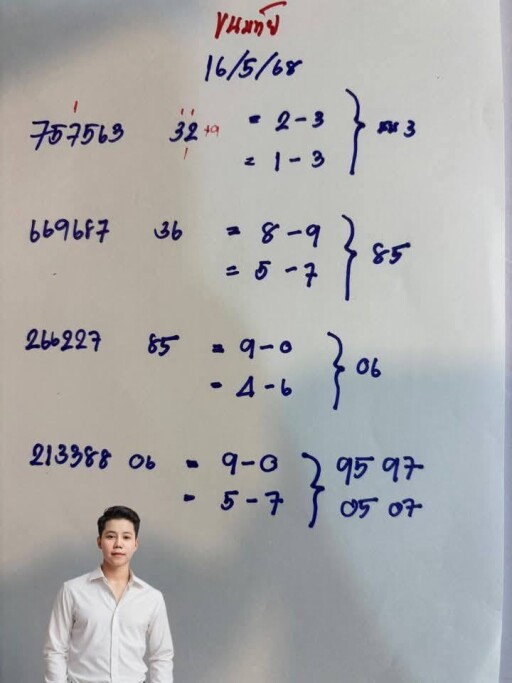 ขุนมทัย
16/5/68
757563 32 +9 = 2-3
= 1-3 } 3
669687 36 = 8-9
= 5-7 } 85
266227 85 = 9-0
= 4-6 } 06
213388 06 = 9-0 } 95 97
= 5-7 05 07